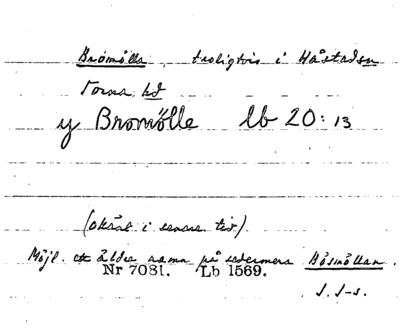 Bromölla, troligtvis i Håstad sn
Torna hd
y Bromölle lb 20:13
(okänt i senare tid).
Möjl. ett äldre namn på sedermera Håsmöllan.
Nr 7081. Lb 1569.
J. S-s.